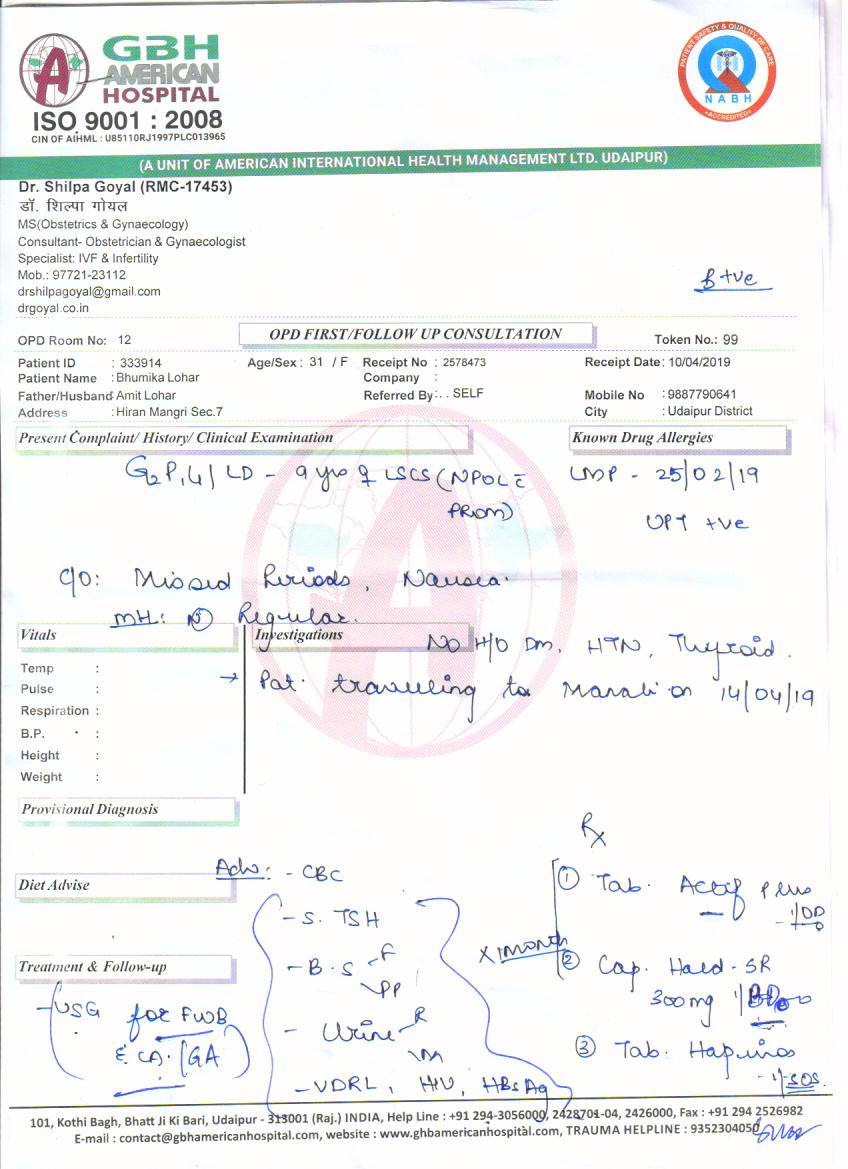 GBH
AMERICAN
HOSPITAL
ISO 9001 : 2008
CIN OF AIHML : U85110RJ1997PLC013965
PATIENT SAFETY & QUALITY OF CARE
NABH
ACCREDITED
(A UNIT OF AMERICAN INTERNATIONAL HEALTH MANAGEMENT LTD. UDAIPUR)
Dr. Shilpa Goyal (RMC-17453)
डॉ. शिल्पा गोयल
MS(Obstetrics & Gynaecology)
Consultant- Obstetrician & Gynaecologist
Specialist: IVF & Infertility
Mob.: 97721-23112
drshilpagoyal@gmail.com
drgoyal.co.in
B +ve
OPD Room No: 12 OPD FIRST/FOLLOW UP CONSULTATION Token No.: 99
Patient ID : 333914 Age/Sex : 31 / F Receipt No : 2578473 Receipt Date: 10/04/2019
Patient Name : Bhumika Lohar Company :
Father/Husband: Amit Lohar Referred By: . . SELF Mobile No : 9887790641
Address : Hiran Mangri Sec.7 City : Udaipur District
Present Complaint/ History/ Clinical Examination Known Drug Allergies
G2P1L1 / LD - 9 yrs LSCS (NPOL c̄ LMP - 25/02/19
PROM)
UPT +ve
C/O: Missed Periods, Nausea.
MH: N Regular.
Vitals Investigations
No H/O Dm, HTN, Thyroid.
Temp :
→ Pat. travelling to Manali on 14/04/19
Pulse :
Respiration :
B.P. :
Height :
Weight :
Provisional Diagnosis
Rx
Adv: - CBC
Diet Advise
① Tab. Plus
- 1/OD
- S. TSH
- B.S F
PP
x 1 month
② Cap. - SR
300mg 1/
Treatment & Follow-up
- USG for FWB
c̄ CA. / GA
- Urine R
M
③ Tab.
- 1/SOS.
- VDRL, HIV, HBsAg
101, Kothi Bagh, Bhatt Ji Ki Bari, Udaipur - 313001 (Raj.) INDIA, Help Line : +91 294-3056000, 2428701-04, 2426000, Fax : +91 294 2526982
E-mail : contact@gbhamericanhospital.com, website : www.ghbamericanhospital.com, TRAUMA HELPLINE : 9352304050